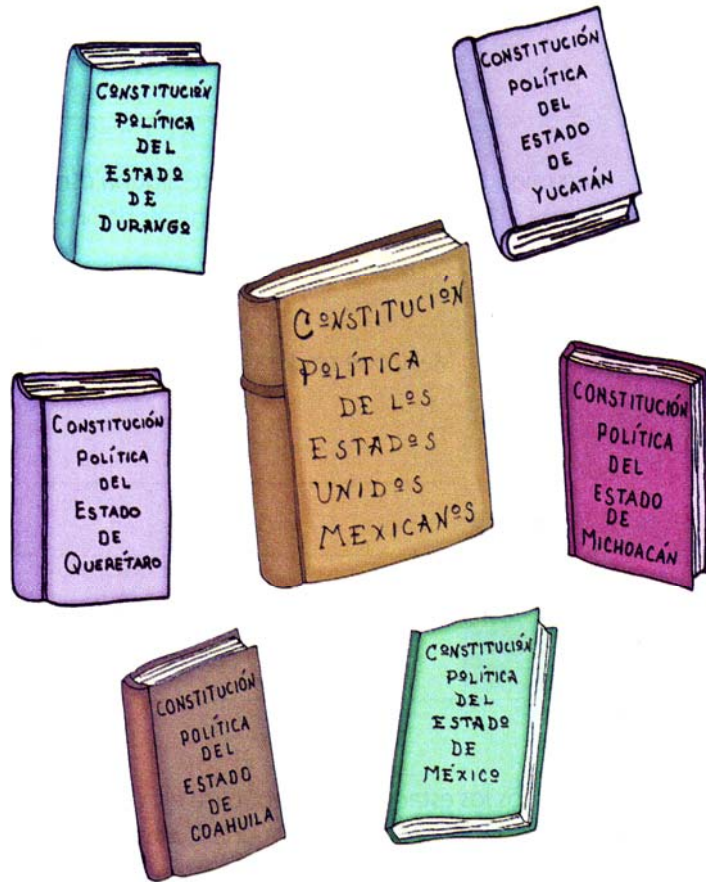 CONSTITUCIÓN
POLÍTICA
DEL
ESTADO
DE
DURANGO
CONSTITUCIÓN
POLÍTICA
DEL
ESTADO
DE
YUCATÁN
CONSTITUCIÓN
POLÍTICA
DE LOS
ESTADOS
UNIDOS
MEXICANOS
CONSTITUCIÓN
POLÍTICA
DEL
ESTADO
DE
QUERÉTARO
CONSTITUCIÓN
POLÍTICA
DEL
ESTADO
DE
MICHOACÁN
CONSTITUCIÓN
POLÍTICA
DEL
ESTADO
DE
COAHUILA
CONSTITUCIÓN
POLÍTICA
DEL
ESTADO
DE
MÉXICO